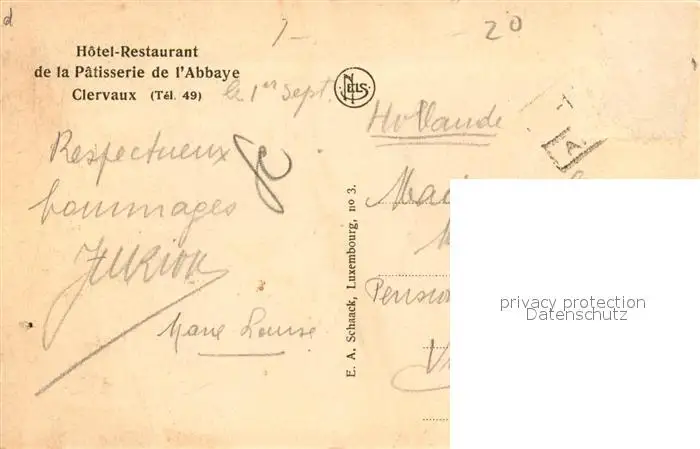 1- 20
Hôtel-Restaurant
de la Pâtisserie de l'Abbaye
Clervaux (Tél. 49)
le 1er sept.
NELS
Hollande
A.
Respectueux
hommages
Marie Louise
E. A. Schaack, Luxembourg, no 3.
Pension
privacy protection
Datenschutz